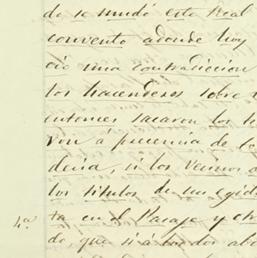 de se mudó este Real
convento adonde hoy
cio una contradiccion
los hacenderos sobre
entonces sacaron los
ron á precencia de
deria, si los vecinos
los titulos de su egid
4.ª ta en el Pacaje y otro
do, que si á